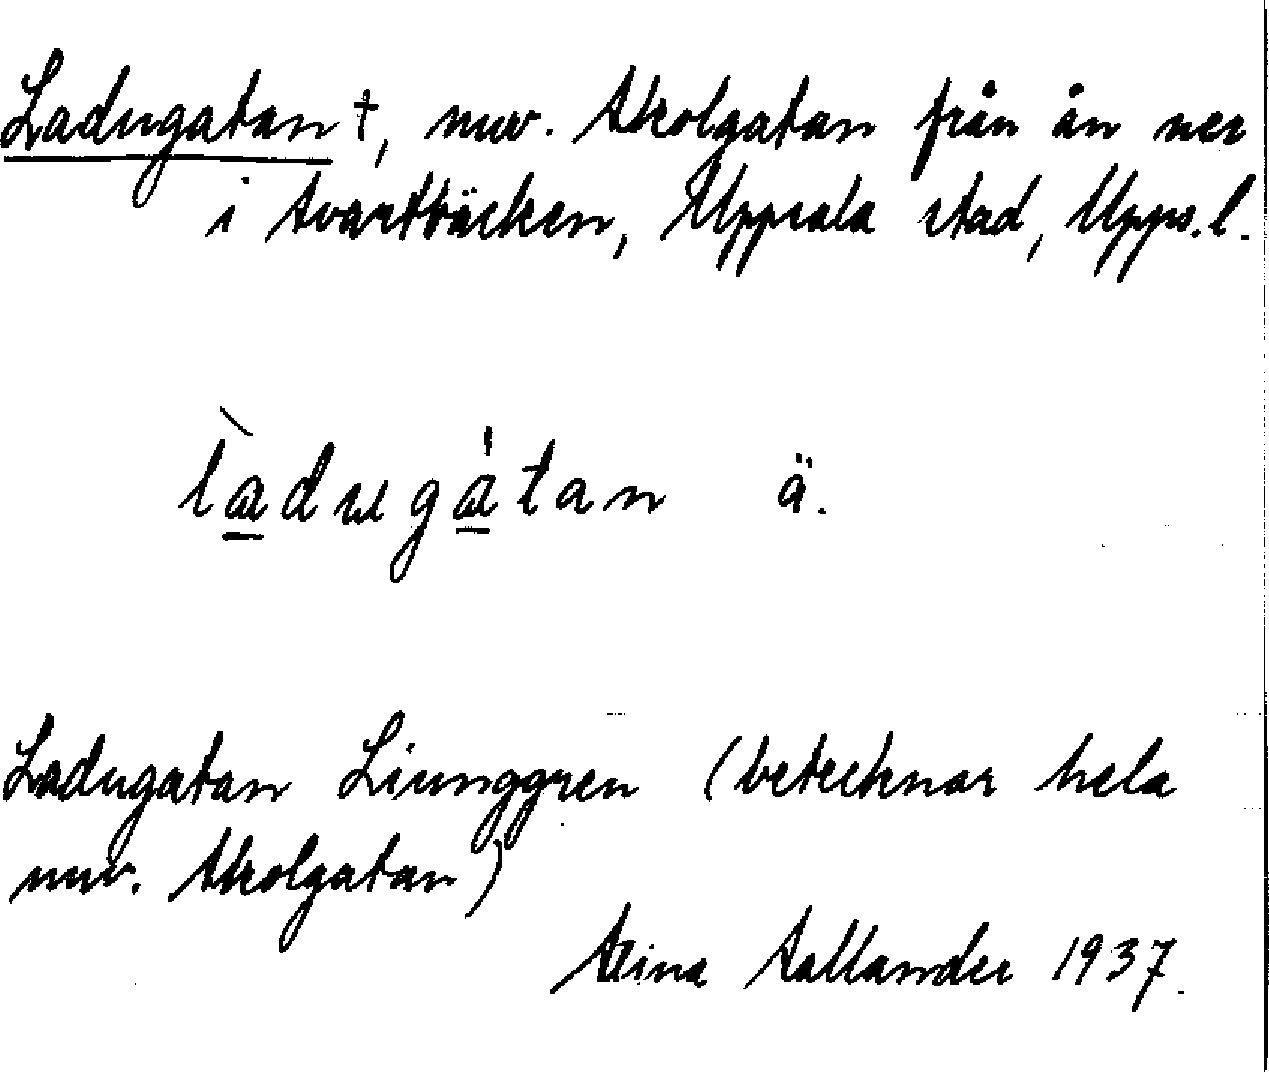 Ladugatan †, nuv. Skolgatan från ån ner
i Svartbäcken, Uppsala stad, Upps. l.
làdugátan ä.
Ladugatan Liunggren (betecknar hela
nuv. Skolgatan)
Stina Sallander 1937.